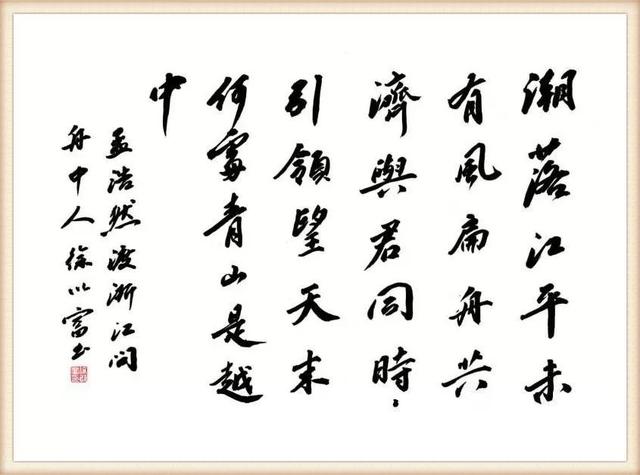 潮落江平未
有風扁舟共
濟與君同時〻
引領望天末
何處青山是越
中
孟浩然渡浙江問
舟中人徐以富书